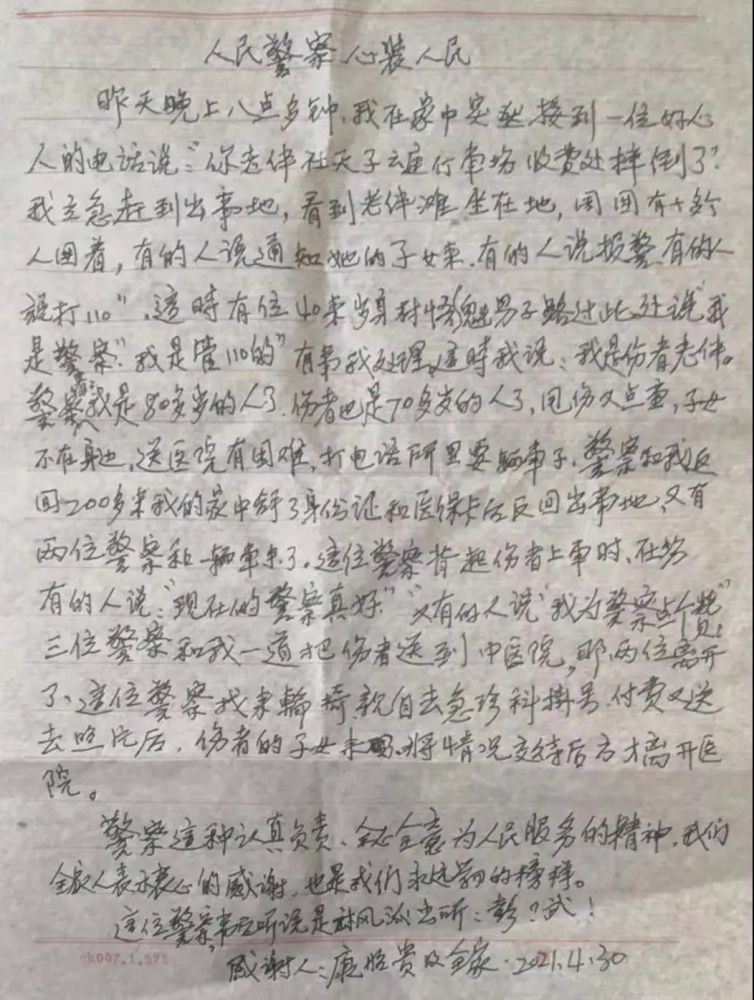 人民警察心装人民
昨天晚上八点多钟,我在家中突然接到一位好心
人的电话说:"你老伴在天子云庭行车场收费处摔倒了"
我立急赶到出事地,看到老伴滩坐在地,周围有十多个
人围着,有的人说通知她的子女来.有的人说报警,有的人
说打110".這時有位40来岁身材悟魁男子路过此处说"我
是警察""我是管110的"有事我处理。這时我说:我是伤者老伴。
警察我是80多岁的人了.伤者也是70多岁的人了,甩伤又点重,子女
不在身边,送医院有困难,打电话所里要辆车子.警察和我返
回200多米我的家中拿了身份证和医保卡后反回出事地,又有
两位警察和一辆车来了。這位警察背起伤者上车时、在场
有的人说:"现在的警察真好""又有的人说"我为警察点个赞"!
三位警察和我一道把伤者送到中医院,那两位离开
了、這位警察找来輪椅,親自去急珍科掛号.付费又送
去照片后.伤者的子女来,将情况交待后方才离开医
院。
警察這种认真负责、全心全意为人民服务的精神,我们
全家人表示衷心的感谢,也是我们永远学习的榜样。
这位警察事后听说是派出所:彭?武!
cb007.1.575
感谢人:全家.2021.4.30